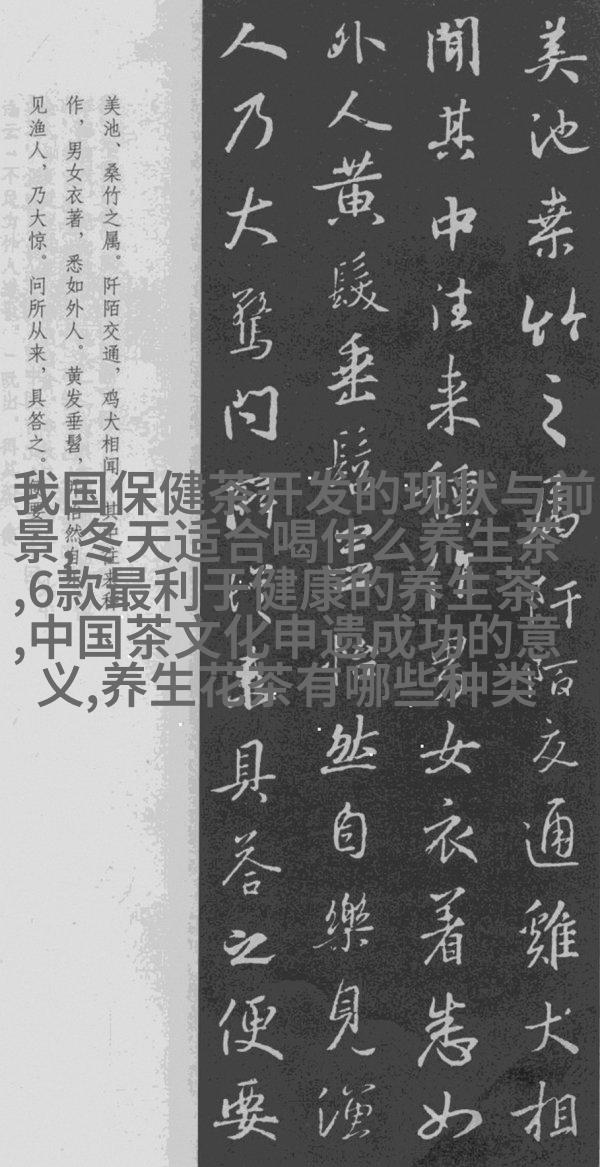 我国保健茶开发的现状与前
景,冬天适合喝什么养生茶
,6款最利于健康的养生茶
,中国茶文化申遗成功的意
义,养生花茶有哪些种类
美池桒竹之属阡陌交通雞犬相
聞其中往来種作男女衣着悉如
外人黄髮垂髫並怡然自樂見漁
人乃大驚问所從来具答之便要
美池、桑竹之属。阡陌交通，鸡犬相闻。其中往来种
作，男女衣著，悉如外人。黄发垂髫，并怡然自
见渔人，乃大惊。问所从来，具答之。便要